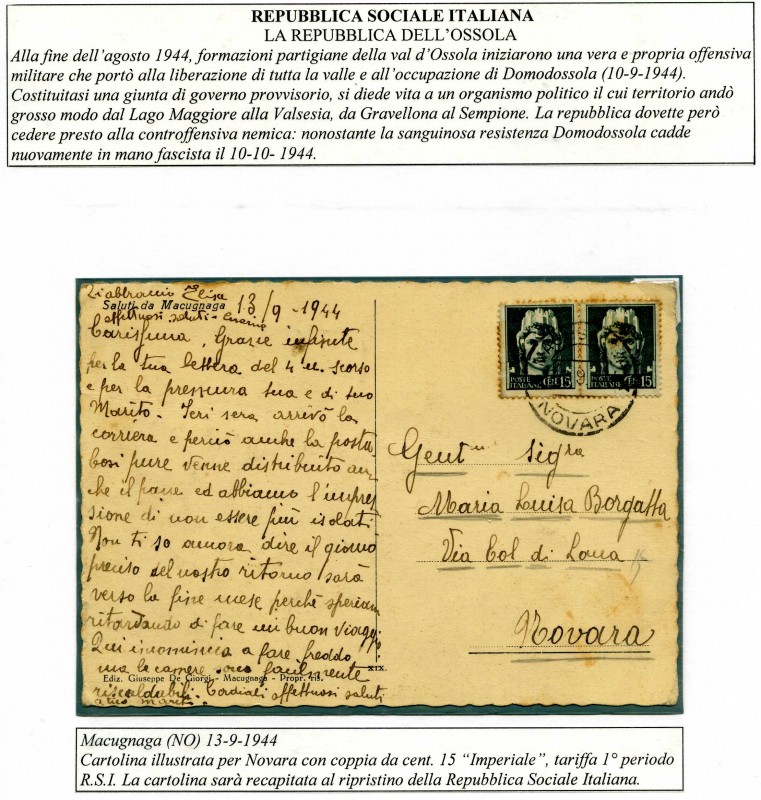 REPUBBLICA SOCIALE ITALIANA
LA REPUBBLICA DELL'OSSOLA
Alla fine dell'agosto 1944, formazioni partigiane della val d'Ossola iniziarono una vera e propria offensiva
militare che portò alla liberazione di tutta la valle e all'occupazione di Domodossola (10-9-1944).
Costituitasi una giunta di governo provvisorio, si diede vita a un organismo politico il cui territorio andò
grosso modo dal Lago Maggiore alla Valsesia, da Gravellona al Sempione. La repubblica dovette però
cedere presto alla controffensiva nemica: nonostante la sanguinosa resistenza Domodossola cadde
nuovamente in mano fascista il 10-10- 1944.
Elisa
Saluti da Macugnaga 13/9-1944
affettuosi saluti -
Carissima, Grazie infinite
per la tua lettera del 4 u. scorso
e per la premura tua e di tuo
Marito. Ieri sera arrivò la
corriera e perciò anche la posta
Così pure venne distribuito an
che il pane ed abbiamo l'impres
sione di non essere più isolati
Non ti so ancora dire il giorno
preciso del nostro ritorno sarà
verso la fine mese perchè speriam
ritardando di fare un buon viaggio
Qui incomincia a fare freddo
ma le camere sono facilmente
Ediz. Giuseppe De Giorgi - Macugnaga - Propr. ris.
riscaldabili. Cordiali affettuosi saluti
a tuo marito
XIX.
POSTE ITALIANE CENT. 15
POSTE ITALIANE CENT. 15
NOVARA
Gent ma Sig ra
Maria Luisa Borgatta
Via Col di Lana 15
Novara
Macugnaga (NO) 13-9-1944
Cartolina illustrata per Novara con coppia da cent. 15 "Imperiale", tariffa 1° periodo
R.S.I. La cartolina sarà recapitata al ripristino della Repubblica Sociale Italiana.